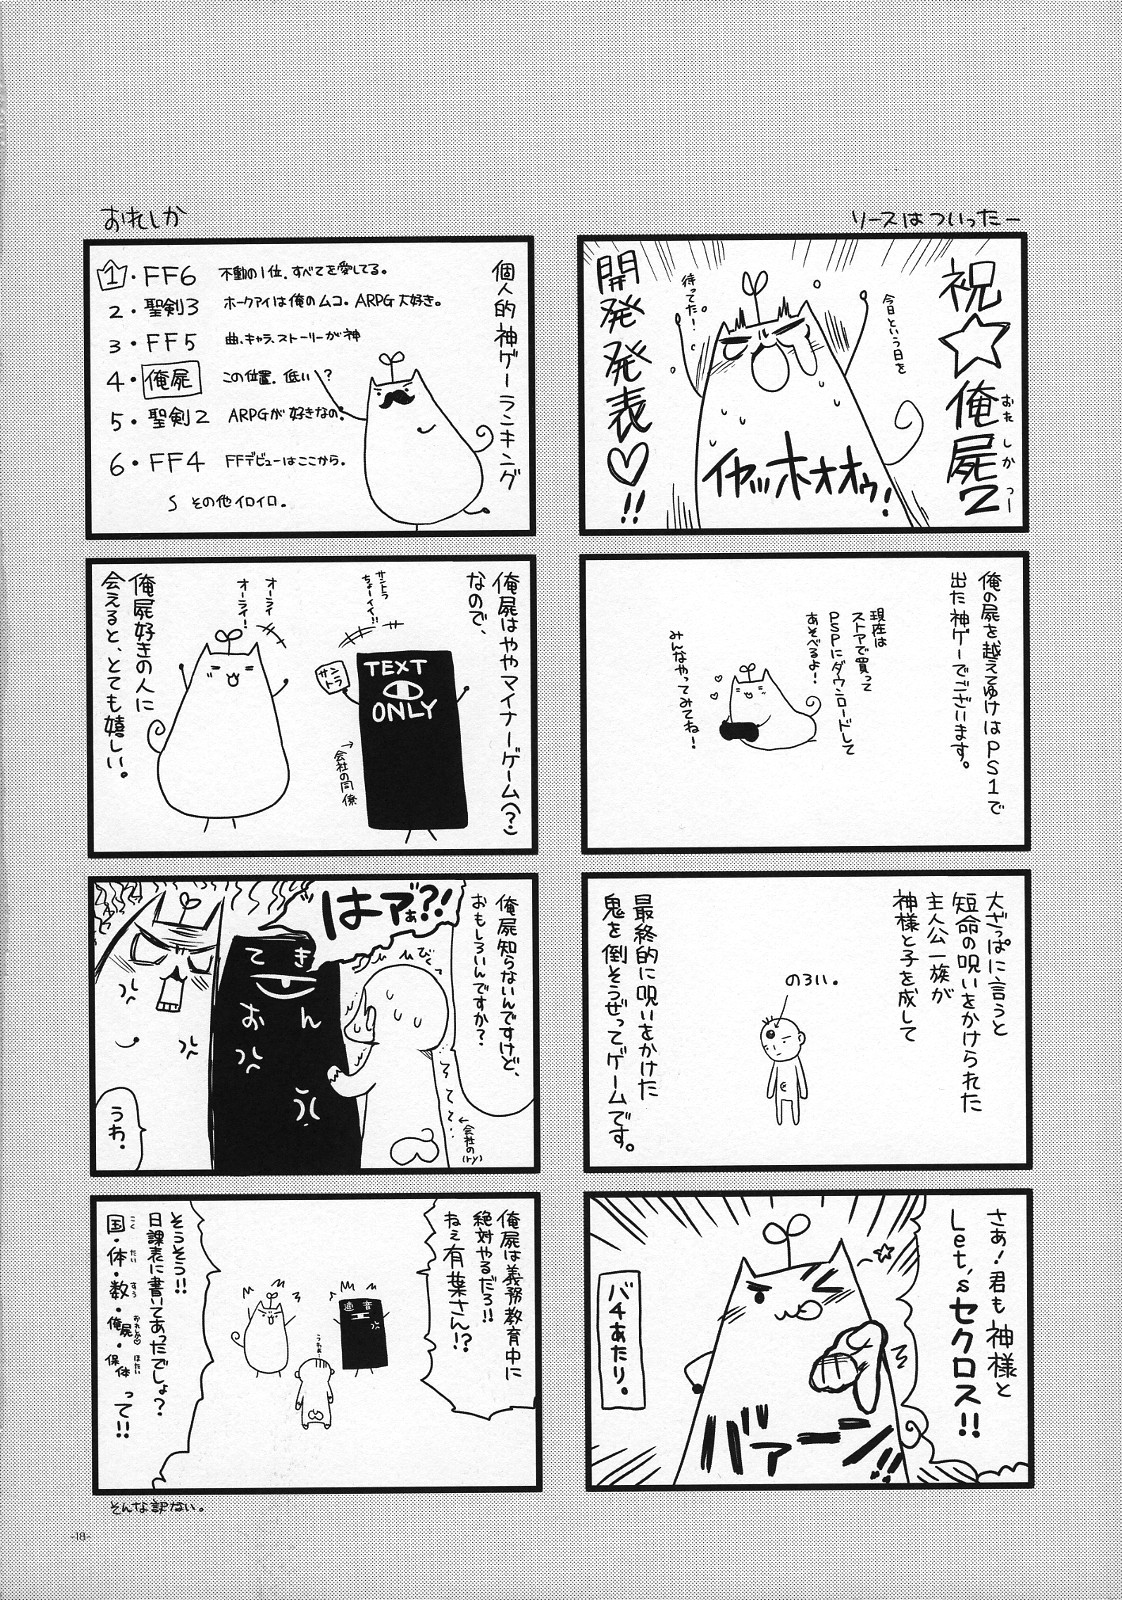 リースはついったー
祝☆俺屍2
おれしかつー
今日という日を
待ってた!
開発発表♡!!
イヤッホオオゥ!
俺の屍を越えてゆけはPS1で
出た神ゲーでございます。
現在は
ストアで買って
PSPにダウンロードして
あそべるよ!
みんなやってみてね!
大ざっぱに言うと
短命の呪いをかけられた
主人公一族が
神様と子を成して
のろい。
最終的に呪いをかけた
鬼を倒そうぜってゲームです。
さあ!君も神様と
Let'sセクロス!!
バチあたり。
バァーン!!
おれしか
個人的神ゲーランキング
1・FF6 不動の1位、すべてを愛してる。
2・聖剣3 ホークアイは俺のムコ。ARPG大好き。
3・FF5 曲、キャラ、ストーリーが神
4・俺屍 この位置、低い?
5・聖剣2 ARPGが好きなの。
6・FF4 FFデビューはここから。
S その他イロイロ。
俺屍はややマイナーゲーム(?)
なので、
サントラ
ちょーイイ!!
サントラ
TEXT
ONLY
→会社の同僚
オーライ
オーライ!
俺屍好きの人に
会えると、とても嬉しい。
俺屍知らないんですけど、
おもしろいんですか?
はアぁ?!
びくっ
てきおん
←会社の(ry)
うわ。
俺屍は義務教育中に
絶対やるだろ!!
ねぇ有葉さん!?
適音
うわぁー
そうそう!!
日課表に書いてあったでしょ?
国・体・数・俺屍・保体って!!
こく たい すう おれしか ほたい
そんな訳ない。
-18-